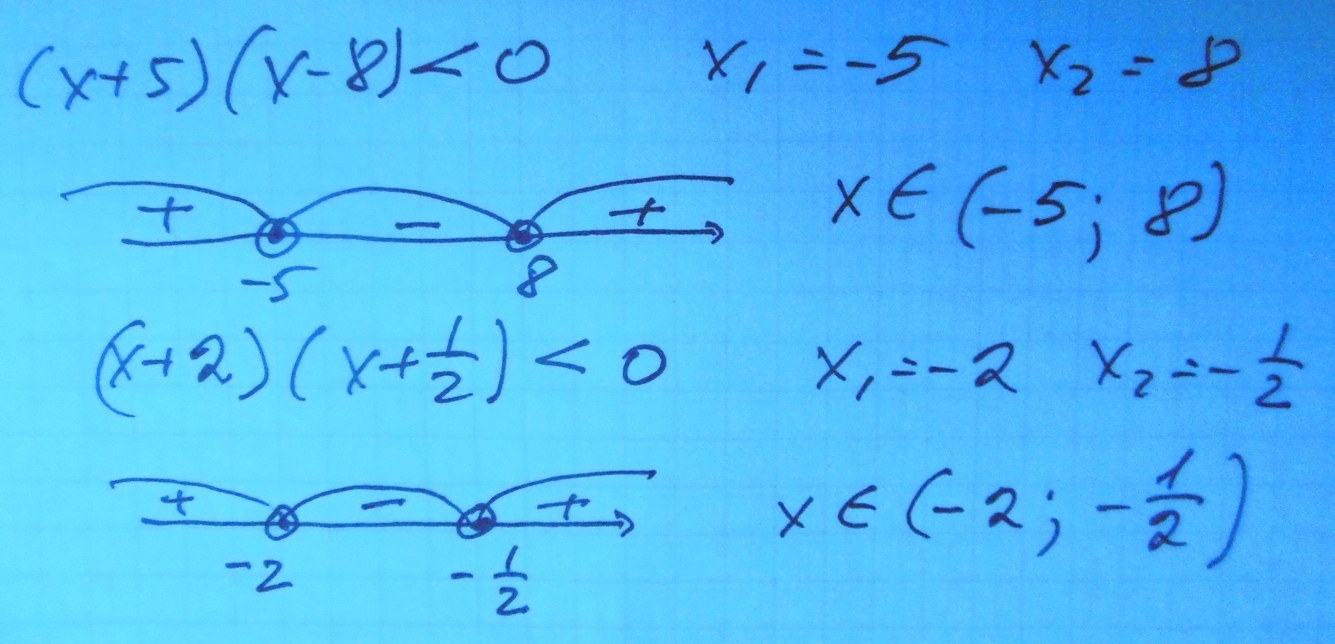 (x+5)(x-8)<0 x₁=-5 x₂=8
+ - + x∈(-5; 8)
-5 8
(x+2)(x+1/2)<0 x₁=-2 x₂=-1/2
+ - + x∈(-2; -1/2)
-2 -1/2